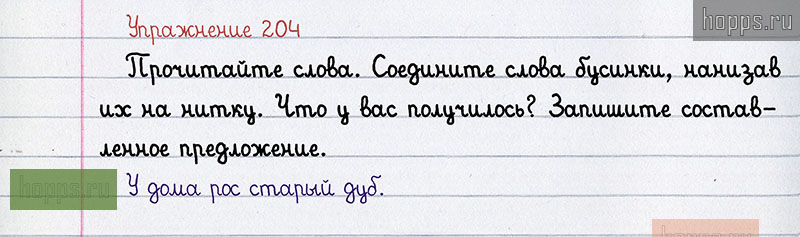 hopps.ru
Упражнение 204
Прочитайте слова. Соедините слова бусинки, нанизав
их на нитку. Что у вас получилось? Запишите состав-
ленное предложение.
hopps.ru
У дома рос старый дуб.